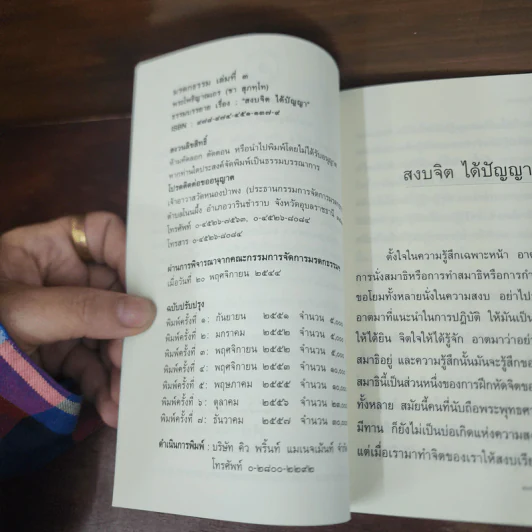 มรดกธรรม เล่มที่ ๓
พระโพธิญาณเถร (ชา สุภทฺโท)
ธรรมบรรยาย เรื่อง : "สงบจิต ได้ปัญญา"
ISBN :
สงวนลิขสิทธิ์
ห้ามคัดลอก ตัดตอน หรือนำไปพิมพ์โดยไม่ได้รับอนุญาต
หากท่านใดประสงค์จัดพิมพ์เป็นธรรมบรรณาการ
โปรดติดต่อขออนุญาต
เจ้าอาวาสวัดหนองป่าพง (ประธานกรรมการจัดการมรดกธรรม
ตำบลโนนผึ้ง อำเภอวารินชำราบ จังหวัดอุบลราชธานี
โทรศัพท์ ๐-๔๕๒๖-๗๕๖๓, ๐-๔๕๒๖-๘๐๘๔
โทรสาร ๐-๔๕๒๖-๘๐๘๔
ผ่านการพิจารณาจากคณะกรรมการจัดการมรดกธรรมฯ
เมื่อวันที่ ๒๐ พฤศจิกายน ๒๕๔๔
ฉบับปรับปรุง
พิมพ์ครั้งที่ ๑ : กันยายน ๒๕๕๑ จำนวน ๕,๐๐๐
พิมพ์ครั้งที่ ๒ : มกราคม ๒๕๕๒ จำนวน ๕,๐๐๐
พิมพ์ครั้งที่ ๓ : พฤศจิกายน ๒๕๕๒ จำนวน ๕,๐๐๐
พิมพ์ครั้งที่ ๔ : พฤศจิกายน ๒๕๕๓ จำนวน ๑๐,๐๐๐
พิมพ์ครั้งที่ ๕ : พฤษภาคม ๒๕๕๕ จำนวน ๑๐,๐๐๐
พิมพ์ครั้งที่ ๖ : ตุลาคม ๒๕๕๖ จำนวน
พิมพ์ครั้งที่ ๗ : ธันวาคม ๒๕๕๗ จำนวน ๑๐,๐๐๐
ดำเนินการพิมพ์ : บริษัท คิว พริ้นท์ แมเนจเม้นท์ จำกัด
โทรศัพท์ ๐-๒๘๐๐-๒๒๙๒
สงบจิต ได้ปัญญา
ตั้งใจในความรู้สึกเฉพาะหน้า
การนั่งสมาธิหรือการทำสมาธิหรือการ
ขอโยมทั้งหลายนั่งในความสงบ อย่าไป
อาตมาที่แนะนำในการปฏิบัติ ให้มันเป็น
ให้ได้ยิน จิตใจให้ได้รู้จัก อาตมาว่าอย่า
สมาธิอยู่ และความรู้สึกนั้นมันจะรู้สึกของ
สมาธินี้เป็นส่วนหนึ่งของการฝึกหัดจิต
ทั้งหลาย สมัยนี้คนที่นับถือพระพุทธศา
มีทาน ก็ยังไม่เป็นบ่อเกิดแห่งความสง
แต่เมื่อเรามาทำจิตของเราให้สงบ